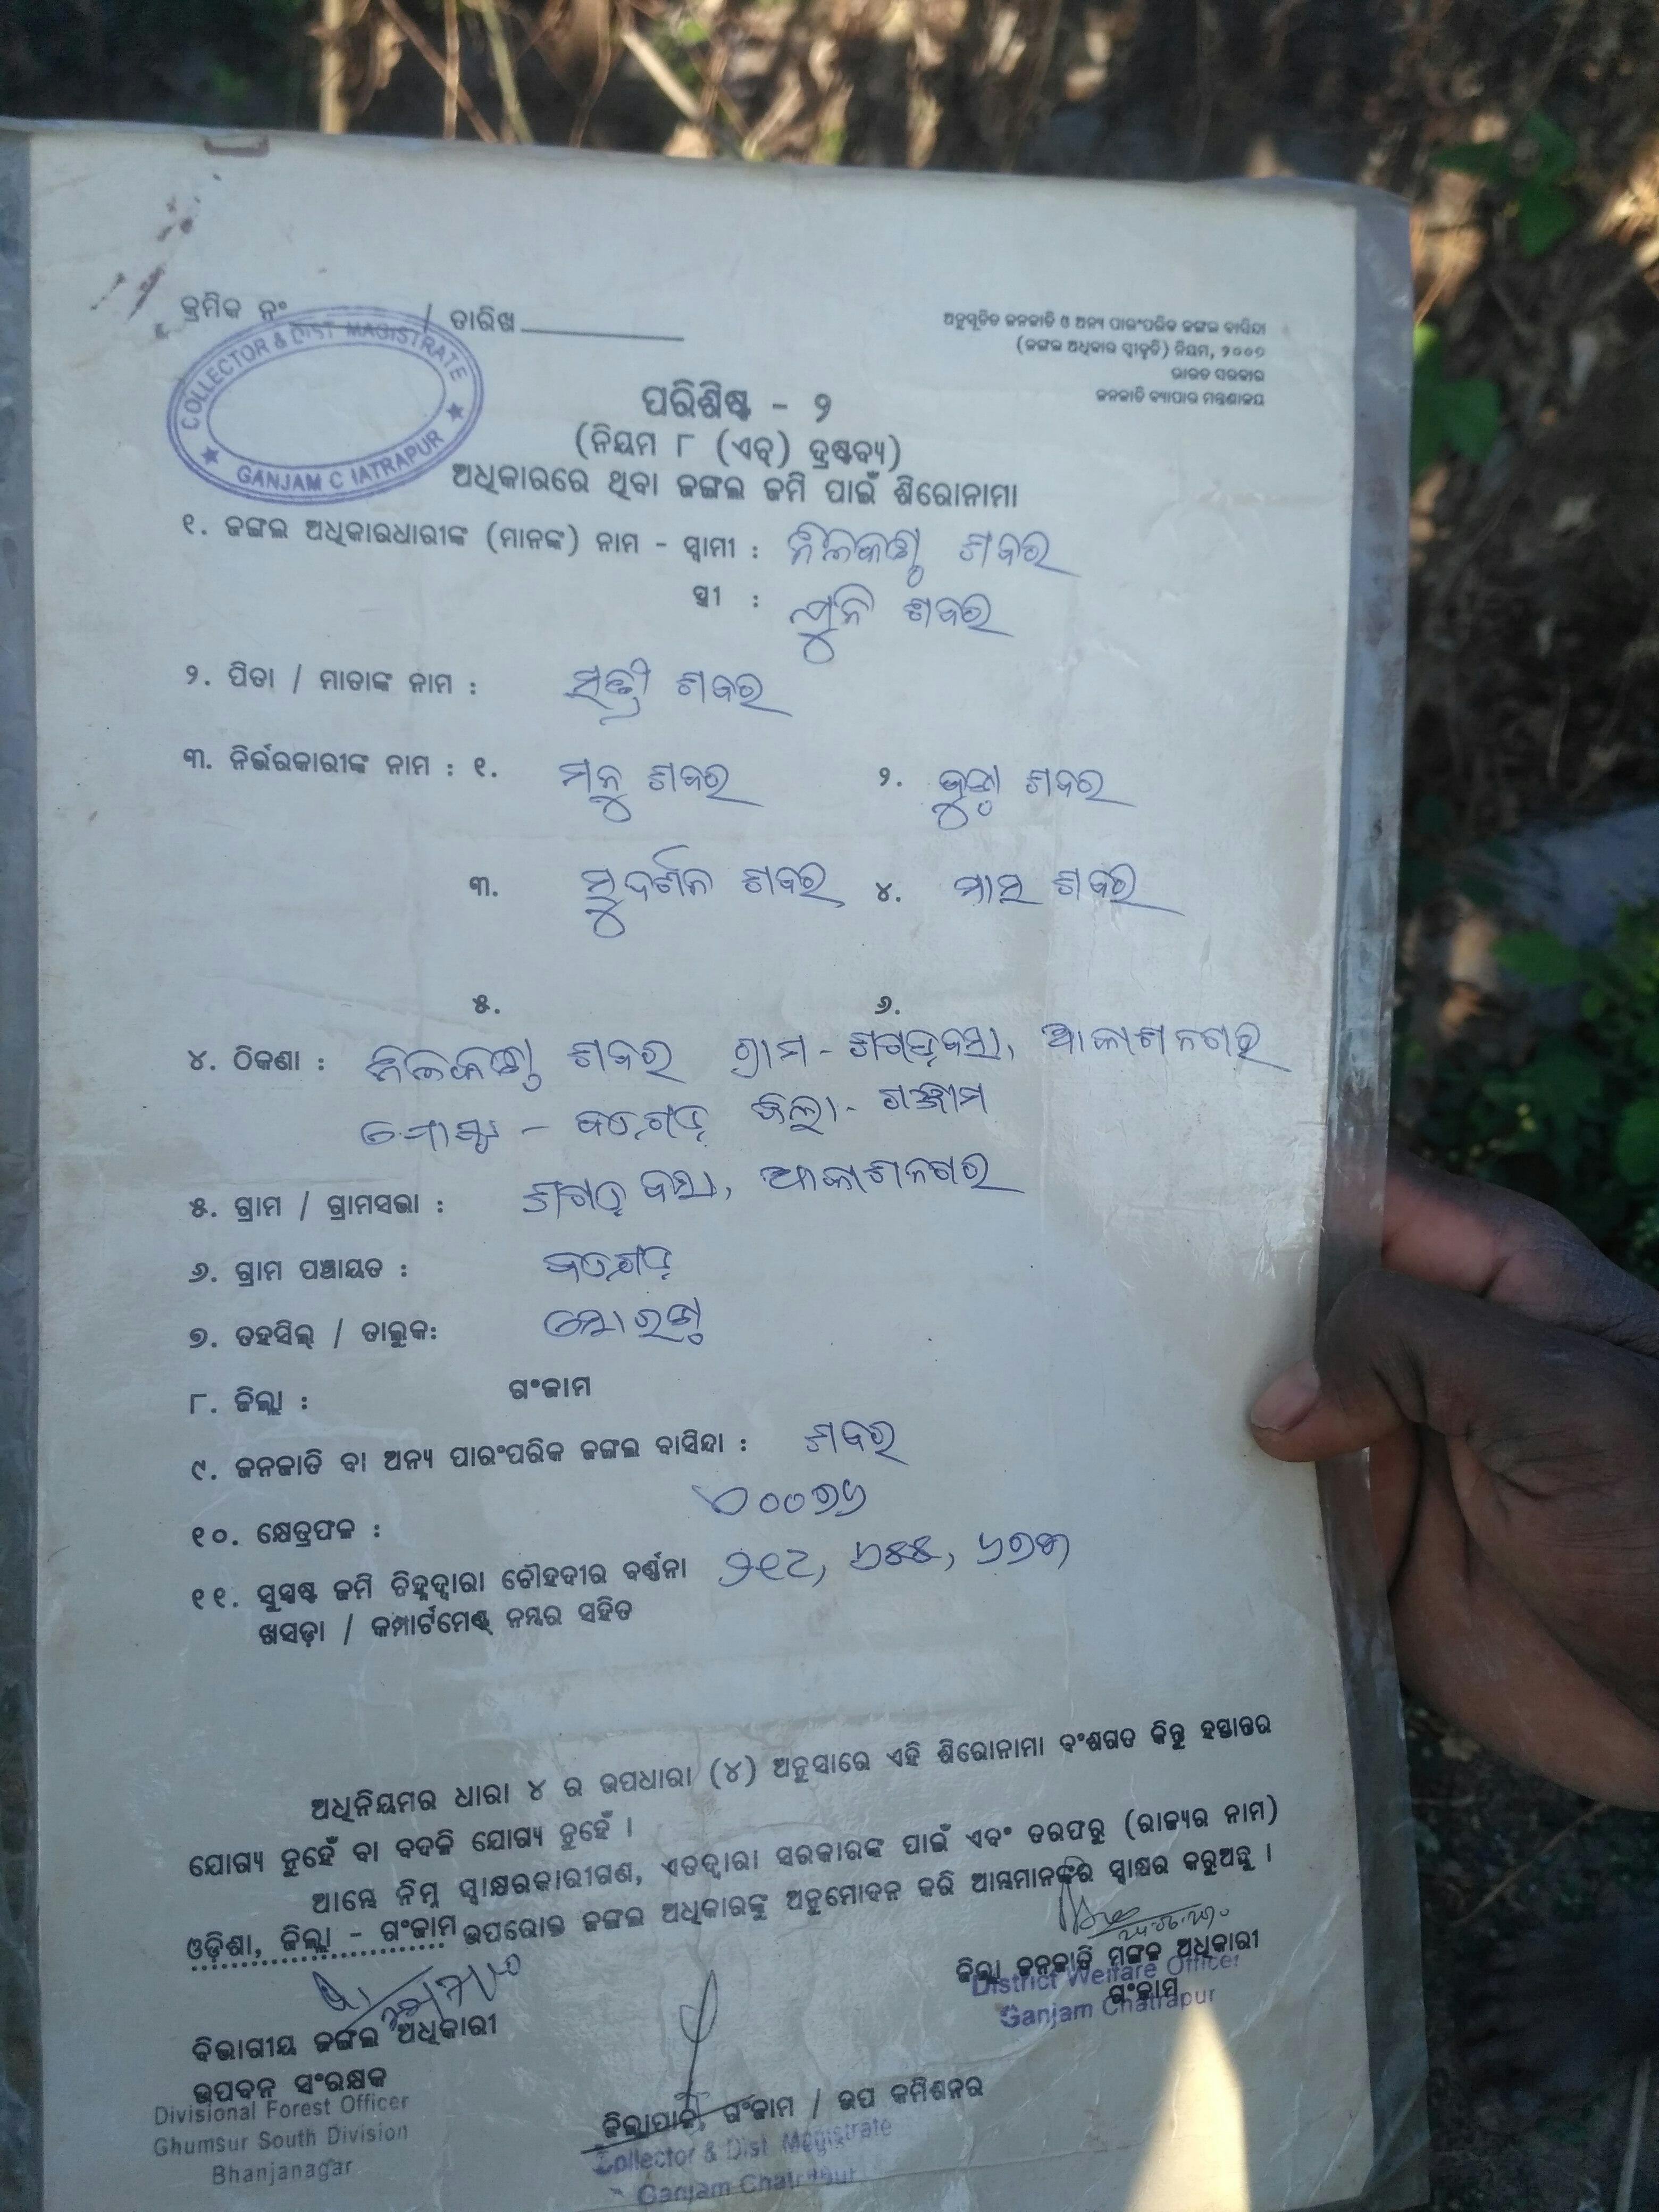 କ୍ରମିକ ନଂ / ତାରିଖ
COLLECTOR & DIST MAGISTRATE
GANJAM C IATRAPUR
ଅନୁସୂଚିତ ଜନଜାତି ଓ ଅନ୍ୟ ପାରଂପରିକ ଜଙ୍ଗଲ ବାସିନ୍ଦା
(ଜଙ୍ଗଲ ଅଧିକାର ସ୍ୱୀକୃତି) ନିୟମ, ୨୦୦୭
ଭାରତ ସରକାର
ଜନଜାତି ବ୍ୟାପାର ମନ୍ତ୍ରଣାଳୟ
ପରିଶିଷ୍ଟ - ୨
(ନିୟମ ୮ (ଏଚ୍) ଦ୍ରଷ୍ଟବ୍ୟ)
ଅଧିକାରରେ ଥିବା ଜଙ୍ଗଲ ଜମି ପାଇଁ ଶିରୋନାମା
୧. ଜଙ୍ଗଲ ଅଧିକାରଧାରୀଙ୍କ (ମାନଙ୍କ) ନାମ - ସ୍ୱାମୀ : ନିଳକଣ୍ଠ ଶବର
ସ୍ତ୍ରୀ : ମୁନି ଶବର
୨. ପିତା / ମାତାଙ୍କ ନାମ : ଶବର
୩. ନିର୍ଭରକାରୀଙ୍କ ନାମ : ୧. ମନୁ ଶବର ୨. ଶବର
୩. ସୁଦର୍ଶନ ଶବର ୪. ଶବର
୫. ୬.
୪. ଠିକଣା : ନିଳକଣ୍ଠ ଶବର ଗ୍ରାମ - ଆକାଶନଗର
ପୋଷ୍ଟ - ଜିଲ୍ଲା - ଗଞ୍ଜାମ
୫. ଗ୍ରାମ / ଗ୍ରାମସଭା : ଆକାଶନଗର
୬. ଗ୍ରାମ ପଞ୍ଚାୟତ :
୭. ତହସିଲ୍ / ତାଲୁକ: ସୋରଣ୍ଡ
୮. ଜିଲ୍ଲା : ଗଂଜାମ
୯. ଜନଜାତି ବା ଅନ୍ୟ ପାରଂପରିକ ଜଙ୍ଗଲ ବାସିନ୍ଦା : ଶବର
୧୦. କ୍ଷେତ୍ରଫଳ :
୧୧. ସୁସ୍ପଷ୍ଟ ଜମି ଚିହ୍ନଦ୍ୱାରା ଚୌହଦୀର ବର୍ଣ୍ଣନା ୨୧୮, ୬୪୫, ୬୭୩
ଖସଡ଼ା / କମ୍ପାର୍ଟମେଣ୍ଟ ନମ୍ବର ସହିତ
ଅଧିନିୟମର ଧାରା ୪ ର ଉପଧାରା (୪) ଅନୁସାରେ ଏହି ଶିରୋନାମା ବଂଶଗତ କିନ୍ତୁ ହସ୍ତାନ୍ତର
ଯୋଗ୍ୟ ନୁହେଁ ବା ବଦଳି ଯୋଗ୍ୟ ନୁହେଁ ।
ଆମ୍ଭେ ନିମ୍ନ ସ୍ୱାକ୍ଷରକାରୀଗଣ, ଏତଦ୍ୱାରା ସରକାରଙ୍କ ପାଇଁ ଏବଂ ତରଫରୁ (ରାଜ୍ୟର ନାମ)
ଓଡ଼ିଶା, ଜିଲ୍ଲା - ଗଂଜାମ ଉପରୋକ୍ତ ଜଙ୍ଗଲ ଅଧିକାରଙ୍କୁ ଅନୁମୋଦନ କରି ଆମ୍ଭମାନଙ୍କର ସ୍ୱାକ୍ଷର କରୁଅଛୁ ।
ଜିଲ୍ଲା ଜନଜାତି ମଙ୍ଗଳ ଅଧିକାରୀ
ଗଂଜାମ
District Welfare Officer
Ganjam Chatrapur
ବିଭାଗୀୟ ଜଙ୍ଗଲ ଅଧିକାରୀ
ଉପବନ ସଂରକ୍ଷକ
Divisional Forest Officer
Ghumsur South Division
Bhanjanagar
ଜିଲ୍ଲାପାଳ, ଗଂଜାମ / ଉପ କମିଶନର
Collector & Dist. Magistrate
Ganjam Chatrapur